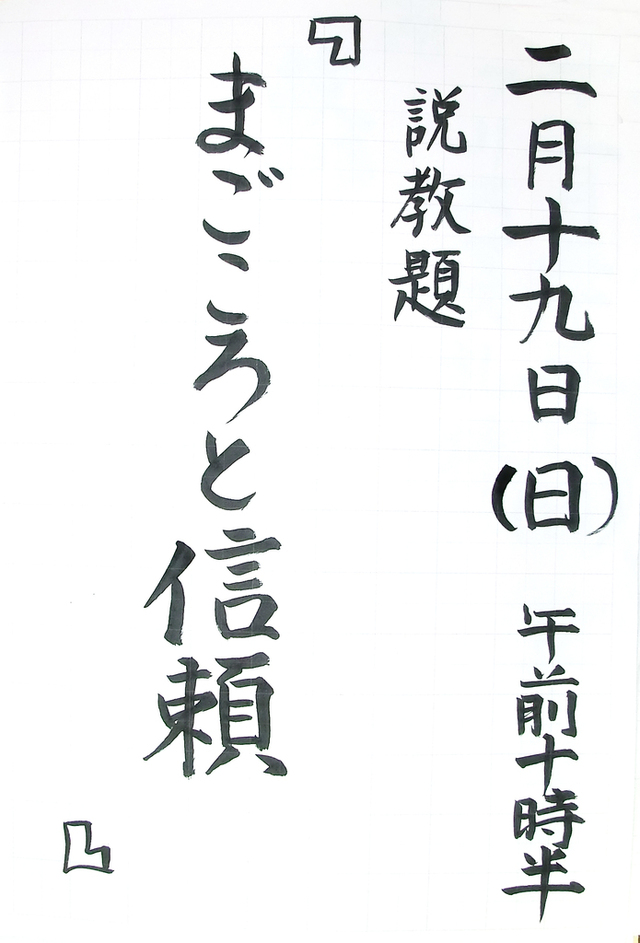 二月十九日(日) 午前十時半
説教題
『まごころと信頼』